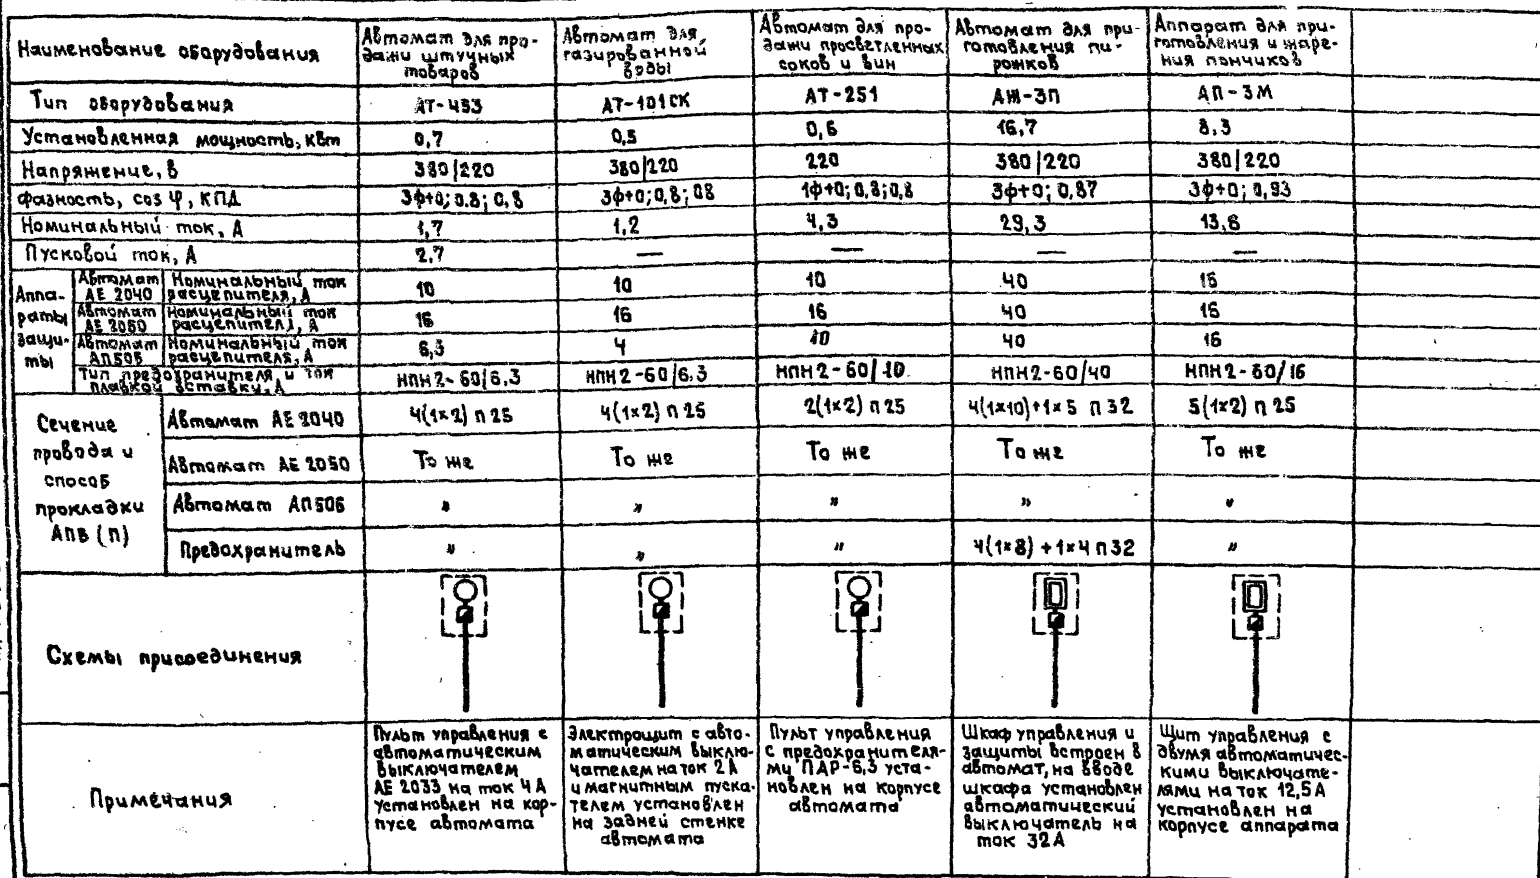 Наименование оборудования
Автомат для про-
дажи штучных
товаров
Автомат для
газированной
воды
Автомат для про-
дажи просветленных
соков и вин
Автомат для при-
готовления пи-
рожков
Аппарат для при-
готовления и жаре-
ния пончиков
Тип оборудования
АТ-453
АТ-101СК
АТ-251
АЖ-3П
АП-3М
Установленная мощность, квт
0,7
0,5
0,6
16,7
8,3
Напряжение, в
380/220
380/220
220
380/220
380/220
фазность, cos φ, КПД
3ф+0; 0.8; 0,8
3ф+0; 0,8; 08
1ф+0; 0,8; 0,8
3ф+0; 0,87
3ф+0; 0,93
Номинальный ток, А
1,7
1,2
4,3
29,3
13,6
Пусковой ток, А
2,7
—
—
—
—
Аппа-
раты
защи-
ты
Автомат
АЕ 2040
Номинальный ток
расцепителя, А
10
10
10
40
16
Автомат
АЕ 2050
Номинальный ток
расцепителя, А
16
16
16
40
16
Автомат
АП50Б
Номинальный ток
расцепителя, А
6,3
4
10
40
16
Тип предохранителя и ток
плавкой вставки, А
НПН2-60/6.3
НПН2-60/6.3
НПН2-60/10
НПН2-60/40
НПН2-60/16
Сечение
провода и
способ
прокладки
АПВ (П)
Автомат АЕ 2040
4(1×2) п 25
4(1×2) п 25
2(1×2) п 25
4(1×10)+1×5 п 32
5(1×2) п 25
Автомат АЕ 2050
То же
То же
То же
То же
То же
Автомат АП50Б
"
"
"
"
"
Предохранитель
"
"
"
4(1×8)+1×4 п 32
"
Схемы присоединения
Примечания
Пульт управления с
автоматическим
выключателем
АЕ 2033 на ток 4А
установлен на кор-
пусе автомата
Электрощит с авто-
матическим выклю-
чателем на ток 2А
и магнитным пуска-
телем установлен
на задней стенке
автомата
Пульт управления
с предохранителя-
ми ПАР-6,3 уста-
новлен на корпусе
автомата
Шкаф управления и
защиты встроен в
автомат, на вводе
шкафа установлен
автоматический
выключатель на
ток 32А
Щит управления с
двумя автоматичес-
кими выключате-
лями на ток 12,5А
установлен на
корпусе аппарата